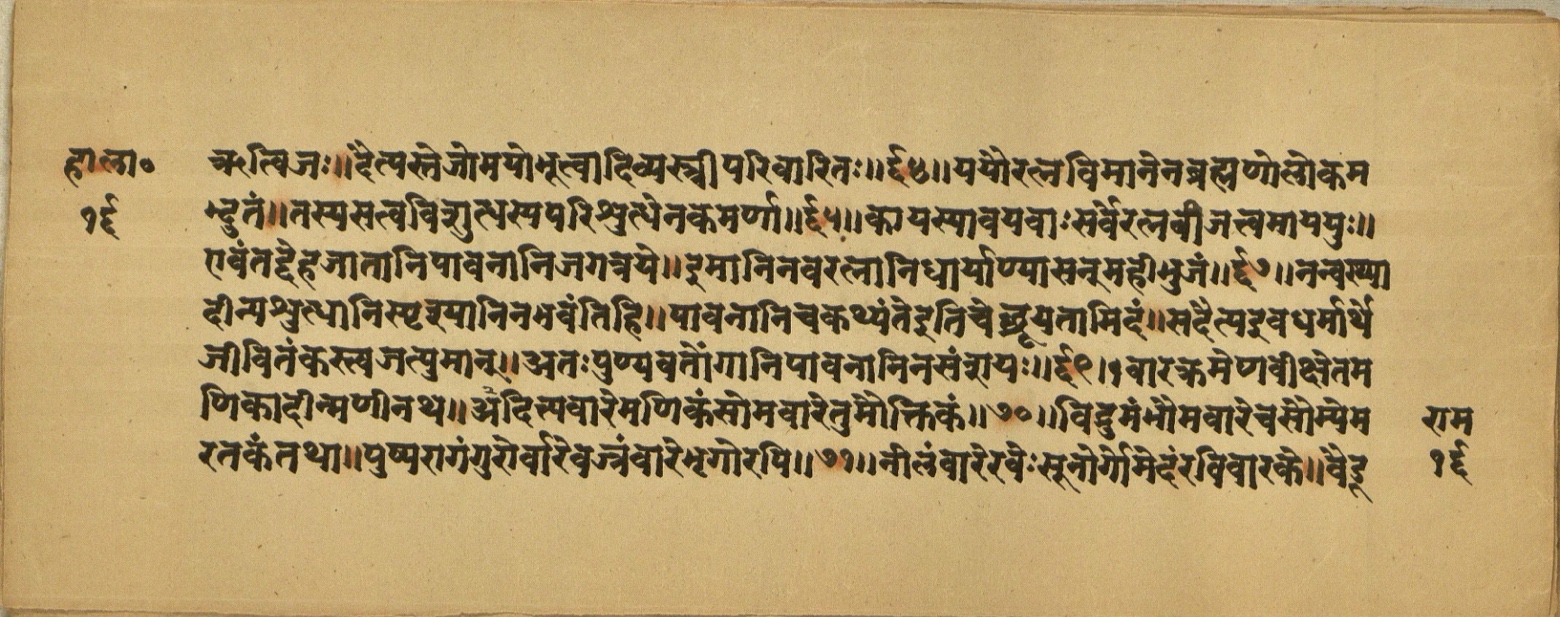 हाला० ऋत्विजः॥दैत्यस्तेजोमयोभूत्वादिव्यस्त्रीपरिवारितः॥६५॥ययौरत्नविमानेनब्रह्मणोलोकम
१६ द्भुतं॥तस्यसत्वविशुत्धस्यपरिशुत्धेनकर्मणा॥६५॥कायस्यावयवाःसर्वेरत्नबीजत्वमाययुः॥
एवंतद्देहजातानिपावनानिजगत्रये॥इमानिनवरत्नानिधार्याण्यासन्महीभुजं॥६७॥नन्वस्थ्या
दीन्यशुत्धानिस्पृश्यानिनभवंतिहि॥पावनानिचकथ्यंतेइतिचेच्छ्रूयतामिदं॥सदैत्यइवधर्मार्थे
जीवितंकस्त्यजत्पुमान्॥अतःपुण्यवतोंगानिपावनानिनसंशयः॥६९॥वारक्रमेणवीक्षेतम
णिकादीन्मणीनथ॥आदित्यवारेमणिकंसोमवारेतुमौक्तिकं॥७०॥विद्रुमंभौमवारेचसौम्येम राम
रतकंतथा॥पुष्यरागंगुरोर्वारेवज्रंवारेभृगोरपि॥७१॥नीलंवारेरवेःसूनोर्गोमेदंरविवारके॥वैडू १६